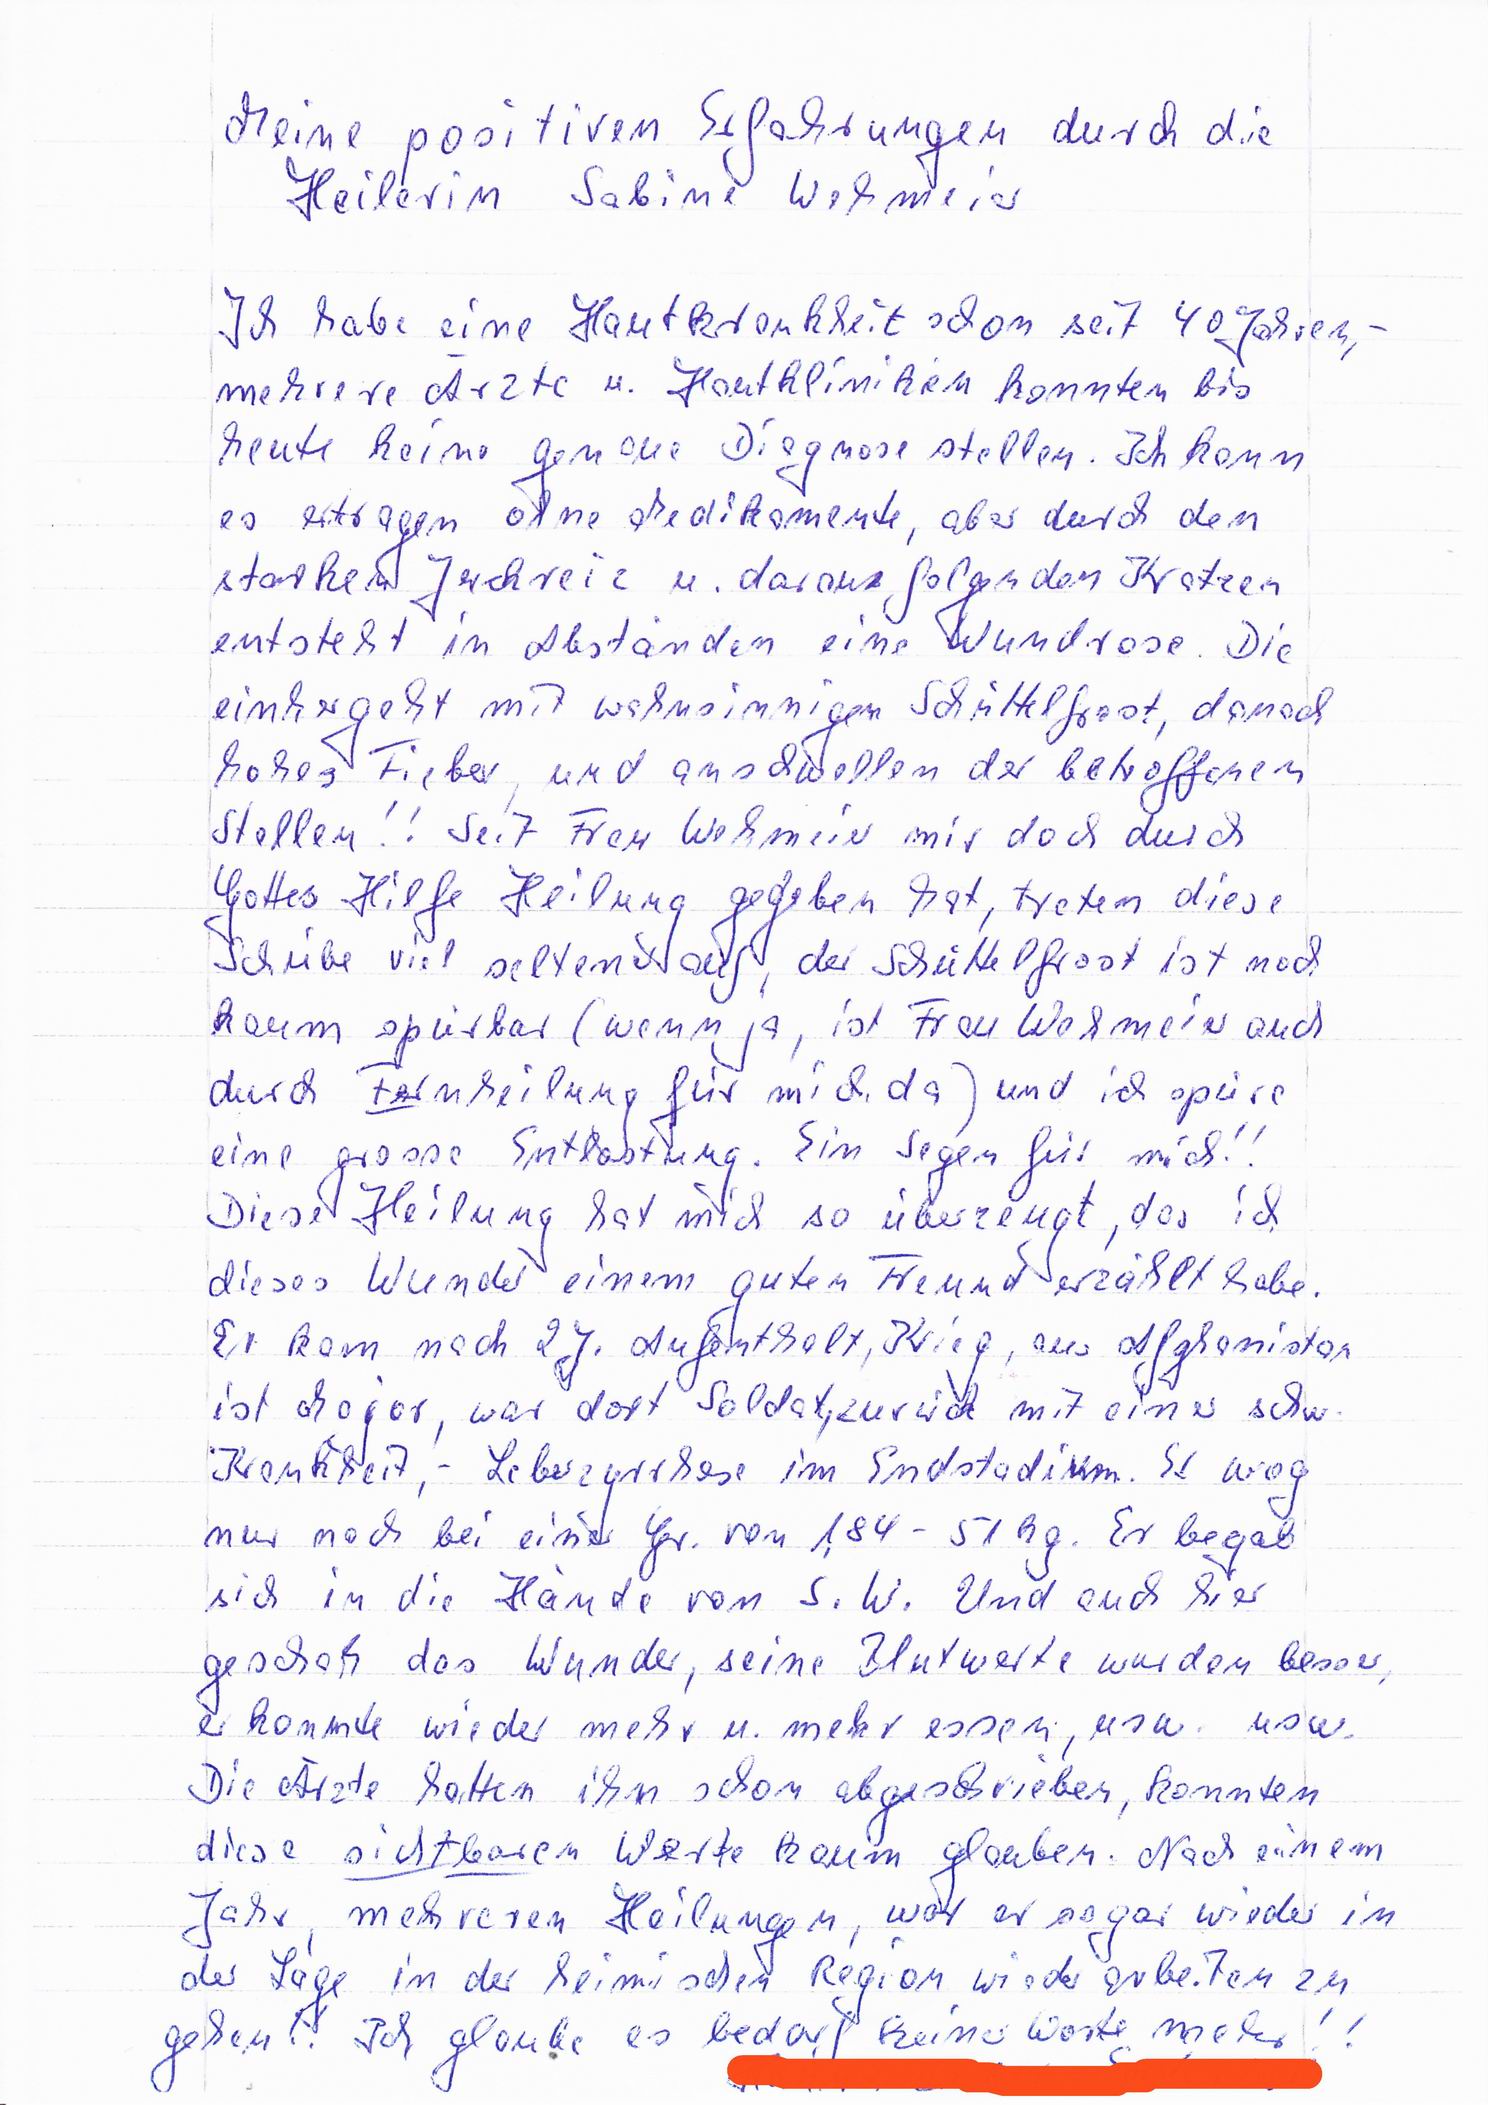 Meine positiven Erfahrungen durch die
Heilerin Sabine Wehmeier
Ich habe eine Hautkrankheit schon seit 40 Jahren,-
mehrere Ärzte u. Hautkliniken konnten bis
heute keine genaue Diagnose stellen. Ich kann
es ertragen ohne Medikamente, aber durch den
starken Juckreiz u. daraus folgenden Kratzen
entsteht in Abständen eine Wundrose. Die
einhergeht mit wahnsinnigen Schüttelfrost, danach
hohes Fieber, und anschwellen der betroffenen
Stellen!! Seit Frau Wehmeier mir doch durch
Gottes Hilfe Heilung gegeben hat, treten diese
Schübe viel seltener auf, der Schüttelfrost ist noch
kaum spürbar (wenn ja, ist Frau Wehmeier auch
durch Fernheilung für mich da) und ich spüre
eine grosse Entlastung. Ein Segen für mich!!
Diese Heilung hat mich so überzeugt, das ich
dieses Wunder einem guten Freund erzählt habe.
Er kam nach 2J. Aufenthalt, Krieg, aus Afghanistan
ist Major, war dort Soldat, zurück mit einer schw.
Krankheit,- Leberzyrrhose im Endstadium. Er wog
nur noch bei einer Gr. von 1,84 - 51 kg. Er begab
sich in die Hände von S. W. Und auch hier
geschah das Wunder, seine Blutwerte wurden besser,
er konnte wieder mehr u. mehr essen, usw. usw.
Die Ärzte hatten ihn schon abgeschrieben, konnten
diese sichtbaren Werte kaum glauben. Nach einem
Jahr, mehreren Heilungen, war er sogar wieder in
der Lage in der heimischen Region wieder arbeiten zu
gehen!! Ich glaube es bedarf keiner Worte mehr!!